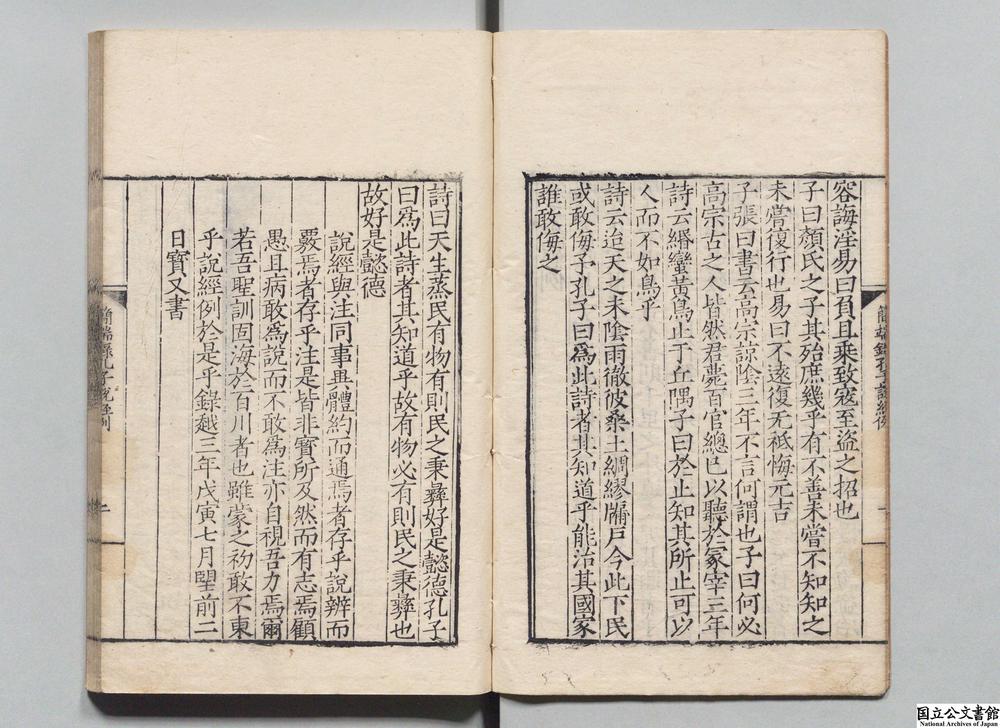 容誨淫易曰負且乘致寇至盜之招也
子曰顏氏之子其殆庶幾乎有不善未嘗不知知之
未嘗復行也易曰不遠復无袛悔元吉
子張曰書云高宗諒陰三年不言何謂也子曰何必
高宗古之人皆然君薨百官總已以聽於冢宰三年
詩云緡蠻黃鳥止于丘隅子曰於止知其所止可以
人而不如鳥乎
詩云迨天之未陰雨徹彼桑土綢繆牖戶今此下民
或敢侮予孔子曰為此詩者其知道乎能治其國家
誰敢侮之
簡端錄孔子說經例
詩曰天生蒸民有物有則民之秉彞好是懿德孔子
曰為此詩者其知道乎故有物必有則民之秉彞也
故好是懿德
說經與注同事異體約而通焉者存乎說辨而
覈焉者存乎注是皆非寶所及然而有志焉顧
愚且病敢為說而不敢為注亦自視吾力焉爾
若吾聖訓固海於百川者也雖蒙之初敢不東
乎說經例於是乎錄越三年戊寅七月朢前二
日寶又書
簡端錄孔子說經例
二
国立公文書館
National Archives of Japan